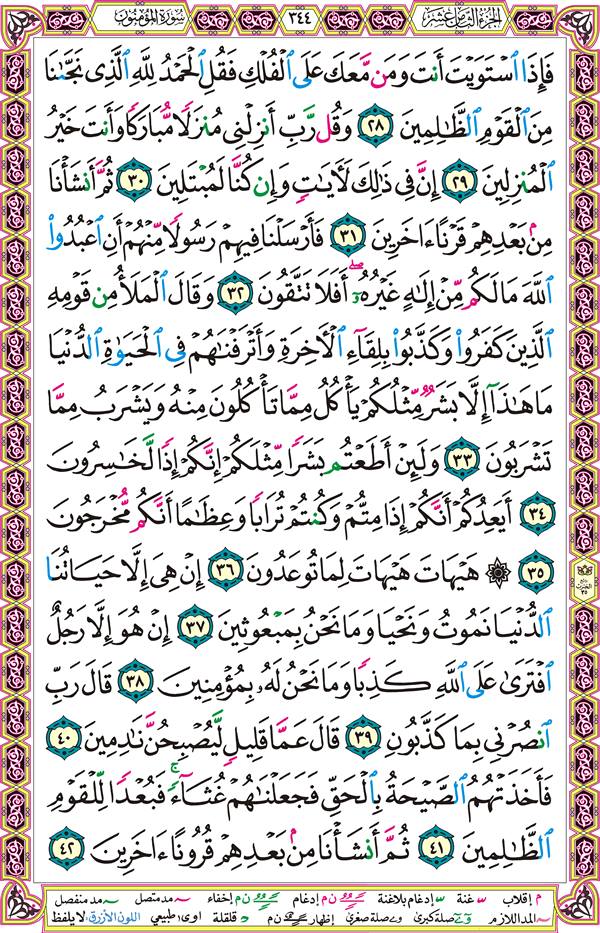 الجزء الثامن عشر ٣٤٤ سورة المؤمنون
فَإِذَا ٱسْتَوَيْتَ أَنتَ وَمَن مَّعَكَ عَلَى ٱلْفُلْكِ فَقُلِ ٱلْحَمْدُ لِلَّهِ ٱلَّذِى نَجَّىٰنَا
مِنَ ٱلْقَوْمِ ٱلظَّـٰلِمِينَ ٢٨ وَقُل رَّبِّ أَنزِلْنِى مُنزَلًا مُّبَارَكًا وَأَنتَ خَيْرُ
ٱلْمُنزِلِينَ ٢٩ إِنَّ فِى ذَٰلِكَ لَـَٔايَـٰتٍ وَإِن كُنَّا لَمُبْتَلِينَ ٣٠ ثُمَّ أَنشَأْنَا
مِنۢ بَعْدِهِمْ قَرْنًا ءَاخَرِينَ ٣١ فَأَرْسَلْنَا فِيهِمْ رَسُولًا مِّنْهُمْ أَنِ ٱعْبُدُوا۟
ٱللَّهَ مَا لَكُم مِّنْ إِلَـٰهٍ غَيْرُهُۥٓ ۖ أَفَلَا تَتَّقُونَ ٣٢ وَقَالَ ٱلْمَلَأُ مِن قَوْمِهِ
ٱلَّذِينَ كَفَرُوا۟ وَكَذَّبُوا۟ بِلِقَآءِ ٱلْـَٔاخِرَةِ وَأَتْرَفْنَـٰهُمْ فِى ٱلْحَيَوٰةِ ٱلدُّنْيَا
مَا هَـٰذَآ إِلَّا بَشَرٌ مِّثْلُكُمْ يَأْكُلُ مِمَّا تَأْكُلُونَ مِنْهُ وَيَشْرَبُ مِمَّا
تَشْرَبُونَ ٣٣ وَلَئِنْ أَطَعْتُم بَشَرًا مِّثْلَكُمْ إِنَّكُمْ إِذًا لَّخَـٰسِرُونَ
٣٤ أَيَعِدُكُمْ أَنَّكُمْ إِذَا مِتُّمْ وَكُنتُمْ تُرَابًا وَعِظَـٰمًا أَنَّكُم مُّخْرَجُونَ
٣٥ ۞ هَيْهَاتَ هَيْهَاتَ لِمَا تُوعَدُونَ ٣٦ إِنْ هِىَ إِلَّا حَيَاتُنَا
ٱلدُّنْيَا نَمُوتُ وَنَحْيَا وَمَا نَحْنُ بِمَبْعُوثِينَ ٣٧ إِنْ هُوَ إِلَّا رَجُلٌ
ٱفْتَرَىٰ عَلَى ٱللَّهِ كَذِبًا وَمَا نَحْنُ لَهُۥ بِمُؤْمِنِينَ ٣٨ قَالَ رَبِّ
ٱنصُرْنِى بِمَا كَذَّبُونِ ٣٩ قَالَ عَمَّا قَلِيلٍ لَّيُصْبِحُنَّ نَـٰدِمِينَ ٤٠
فَأَخَذَتْهُمُ ٱلصَّيْحَةُ بِٱلْحَقِّ فَجَعَلْنَـٰهُمْ غُثَآءً ۚ فَبُعْدًا لِّلْقَوْمِ
ٱلظَّـٰلِمِينَ ٤١ ثُمَّ أَنشَأْنَا مِنۢ بَعْدِهِمْ قُرُونًا ءَاخَرِينَ ٤٢
م إقلاب غنة إدغام بلاغنة ن م إدغام ن م إخفاء مد متصل مد منفصل
المد اللازم صلة كبرى صلة صغرى إظهار ن م قلقلة اوى: طبيعي اللون الأزرق: لا يلفظ